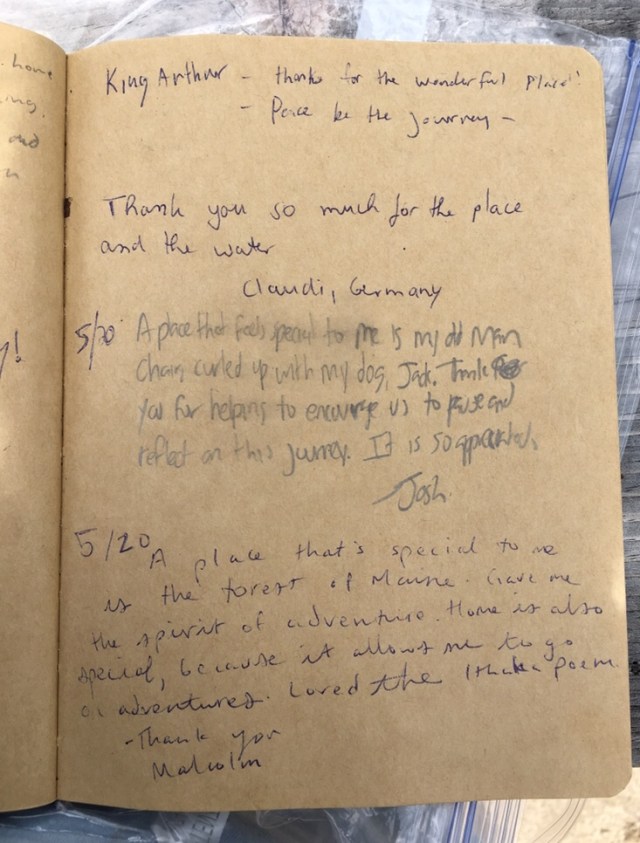 home
ing.
and
n
y!
King Arthur - thanks for the wonderful place!
- Peace be the journey -
Thank you so much for the place
and the water
Claudi, Germany
5/20 A place that feels special to me is my old man
chair, curled up with my dog, Jack. Thank
you for helping to encourage us to pause and
reflect on this journey. It is so appreciated.
Josh.
5/20 A place that's special to me
is the forest of Maine. Gave me
the spirit of adventure. Home is also
special, because it allows me to go
on adventures. Loved the Ithaka poem
-Thank you
Malcolm